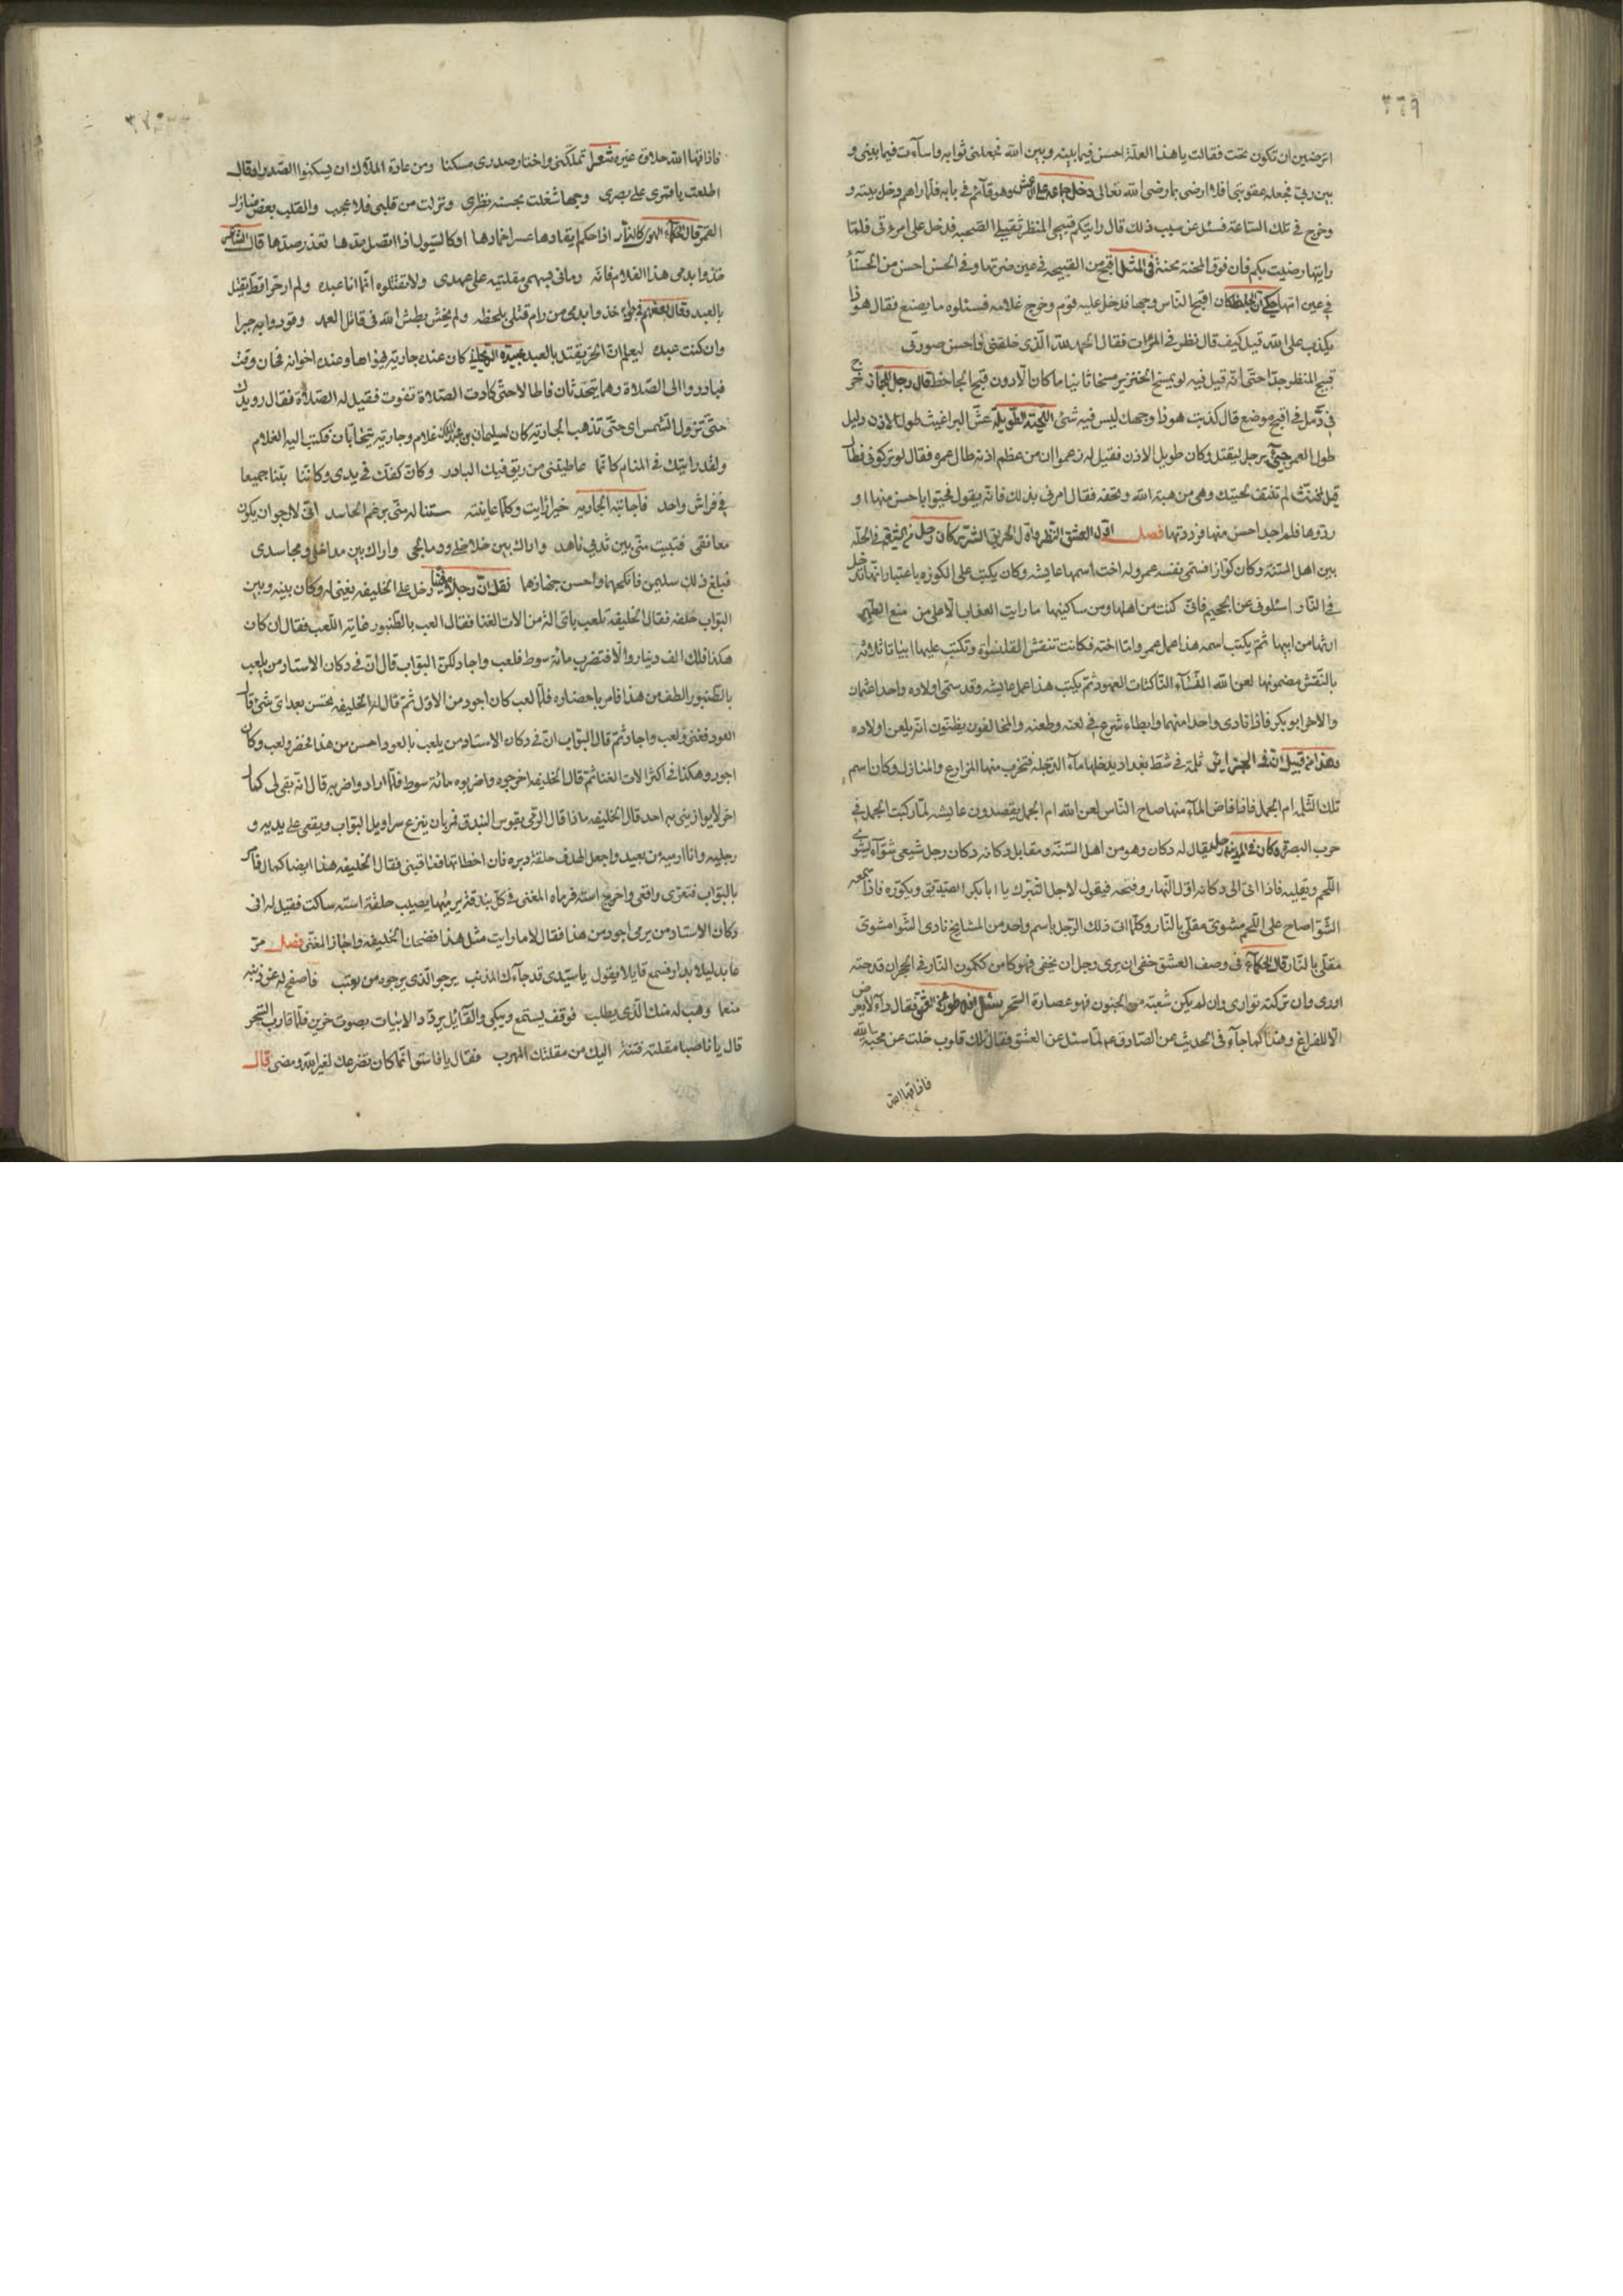 ٣٦٩
اترضين ان تكون تحت فقالت يا هذا لعلّه احسن فيما بينه وبين الله فجعلنى ثوابه واسآءت فيما بينى و
بين ربى فجعله عقوبتى افلا ارضى بما رضى الله تعالى دخل جماعة على الاعمش وهو قآئم فى بابه فلمّا راهم دخل بيته و
وخرج فى تلك السّاعة فسئل عن سبب ذلك قال رايتكم قبيحى المنظر ثقيلى الصّحبه فدخل على امرءتى فلمّا
رايتها رضيت بكم فان فوق المحنة محنة فى المثل اقبح من القبيحه فى عين ضرتها وفى الحسن احسن من الحسنآء
فى عين امّها حكى ان الجاحظ كان اقبح النّاس وجها فدخل عليه قوم وخرج غلامه فسئلوه ما يصنع فقال هو ذا
يكذب على الله قيل كيف قال نظر فى المرٰات فقال الحمد لله الّذى خلقنى واحسن صورتى
قبيح المنظر جدّا حتّى انّه قيل فيه لو يمسخ الخنزير مسخا ثانيا ما كان الّا دون قبح الجاحظ قال رجل للحجّاج خرج
فى دمّل فى اقبح موضع قال كذبت هو ذا وجهك ليس فيه شئ اللّحية الطّويلة عشّ البراغيث طول الاذن دليل
طول العمر جئ برجل ليقتل وكان طويل الاذن فقيل له زعموا ان من عظم اذنه طال عمره فقال لو تركونى لطال
قيل لمخنّث لم تنتف لحيتك وهى من هبة الله وتحفه فقال امرنى بذلك فانّه يقول فحيّوا باحسن منها او
ردّوها فلم اجد احسن منها فرددتها فصل اوّل العشق النّظر واوّل الحريق الشّرر كان رجل من الشّيعة فى الحلّه
بين اهل السّنّة وكان كوّازا فسمّى نفسه عمر وله اخت اسمها عايشه وكان يكتب على الكوزه باعتبار انّها تدخل
فى النّار اسئلونى عن الجحيم فانّى كنت من اهلها ومن ساكنيها ما رايت العذاب الّا على من منع الطّهر
ارثها من ابيها ثمّ يكتب اسمه هذا عمل عمر وامّا اخته فكانت تنقش القلنسوة وتكتب عليها ابياتا ثلاثة
بالنّقش مضمونها لعن الله النّسآء النّاكثات العهود ثمّ يكتب هذا عمل عايشه وقد سمّى اولاده واحدا عثمان
والاخر ابو بكر فاذا نادى واحدا منهما وابطاء شرع فى لعنه وطعنه والمخالفون يظنّون انّه يلعن اولاده
تلك الثّلمه ام الجمل فاذا فاض المآء منها صاح النّاس لعن الله ام الجمل يقصدون عايشه لمّا ركبت الجمل فى
حرب البصرة وكان فى المدينة رجل يقال له دكان وهو من اهل السّنّة ومقابل دكانه دكان رجل شيعى شوّآء يشوى
اللّحم ويقليه فاذا اتى الى دكانه اوّل النّهار وفتحه فيقول لاجل التّبرك يا ابا بكر الصّديق ويكرّره فاذا سمعه
الشّوّا صاح على اللّحم مشوىّ مقلّى بالنّار وكلّما اتى ذلك الرّجل باسم واحد من المشايخ نادى الشّوا مشوىّ
مقلّى بالنّار قال الحكمآء فى وصف العشق خفى ان يرى وجل ان يخفى فهو كامن ككمون النّار فى الحجر ان قدحته
اورى وان تركته توارى وان لم يكن شعبة من الجنون فهو عصارة السّحر سئل افلاطون عن العشق فقال دآء لا يعرض
الّا للفراغ وهذا كما جآء فى الحديث عن الصّادق عم لمّا سئل عن العشق فقال تلك قلوب خلت عن محبة الله
فاذاقها الله
٣٧٠
فاذاقها الله حلاوة غيره شعر تملّكنى واختار صدرى مسكنا ومن عادة الملّاك ان يسكنوا الصّدرا وقال
اطلعت يا قمرى على بصرى وجها شغلت بحسنه نظرى ونزلت من قلبى فلا عجب والقلب بعض منازل
القمر قال الحكمآء الهوى كالنّار اذا حكم ايقادها عسر اخمادها او كالسّيول اذا اتّصل مدها تعذر صدّها قال الشّاعر
خذوا بدمى هذا الغلام فانّه رمانى بسهمى مقلتيه على عمدى ولا تقتلوه انّما انا عبده ولم ار حرّا قط يقتل
بالعبد وقال بعضهم خذوا بدمى من رام قتلى بلحظه ولم يخش بطش الله فى قاتل العمد وقودوا به جبرا
وان كنت عبده ليعلم انّ الحرّ يقتل بالعبد كان عنده جارية يهواها وعنده اخوانه فحان وقت
فبادروا الى الصّلاة وهما يتحدّثان فاطالا حتّى كادت الصّلاة تفوت فقيل له الصّلاة فقال رويدك
حتّى تزول الشّمس اى حتّى تذهب الجارية كان لسليمان بن عبد الملك غلام وجارية يتحابّان فكتب اليه الغلام
ولقد رايتك فى المنام كانّما عاطيتنى من ريق فيك البارد وكانّ كفّك فى يدى وكانّنا بتنا جميعا
فى فراش واحد فاجابته الجارية خيرا رايت وكلّما عاينته ستناله منّى برغم الحاسد انّى لارجو ان يكون
معانقى فتبيت منّى بين ثدى ناهد واراك بين خلاخلى ودمالجى واراك بين مداخلى ومجاسدى
فبلغ ذلك سليمن فانكحهما واحسن جهازهما نقل انّ رجلا دخل على الخليفه يغنى له وكان بينه وبين
البوّاب حلفه فقال الخليفه تلعب باىّ الة من الات الغنا فقال العب بالطّنبور غاية اللّعب فقال ان كان
هكذا فلك الف دينار والّا فتضرب مائة سوط فلعب واجاد لكن البوّاب قال انّ فى دكان الاستاد من يلعب
بالطّنبور الطف من هذا فامر باحضاره فلمّا لعب كان اجود من الاوّل ثمّ قال له الخليفه تحسن بعد اىّ شئ قال
العود فغنّى ولعب واجاد ثمّ قال البوّاب انّ فى دكان الاستاد من يلعب بالعود احسن من هذا فحضر ولعب وكان
اجود وهكذا فى اكثر الات الغنا ثمّ قال الخليفه اخرجوه واضربوه مائة سوط فلمّا ارادوا ضربه قال انّه بقى لى كمال
اخر لا يوازينى به احد قال الخليفه ما ذا قال الرّمى بقوس البندق فمر بان ينزع سراويل البوّاب ويقعى على يديه و
رجليه وانا ارميه من بعيد واجعل الهدف حلقة دبره فان اخطاتها فعاقبنى فقال الخليفه هذا ايضا كمال فامر
بالبوّاب فتعرى واقعى واخرج استه فرماه المغنى فى كلّ بندقة يرميها يصيب حلقة استه ساكت فقيل له افى
دكان الاستاد من يرمى اجود من هذا فقال لا ما رايت مثل هذا فضحك الخليفه واجاز المغنّى فصل مرّ
عابد ليلا بدار فسمع قايلا يقول يا سيّدى قد جآءك المذنب يرجو الّذى يرجوه من يعتب فاصفح له عن ذنبه
منعما وهب له منك الّذى يطلب فوقف يستمع ويبكى والقآئل يردّد الابيات بصوت حزين فلمّا قارب السّحر
قال يا ناصبا مقلته فتنة اليك من مقلتك المهرب فقال يا فاسق انّما كان تضرعك لغير الله ومضى قال